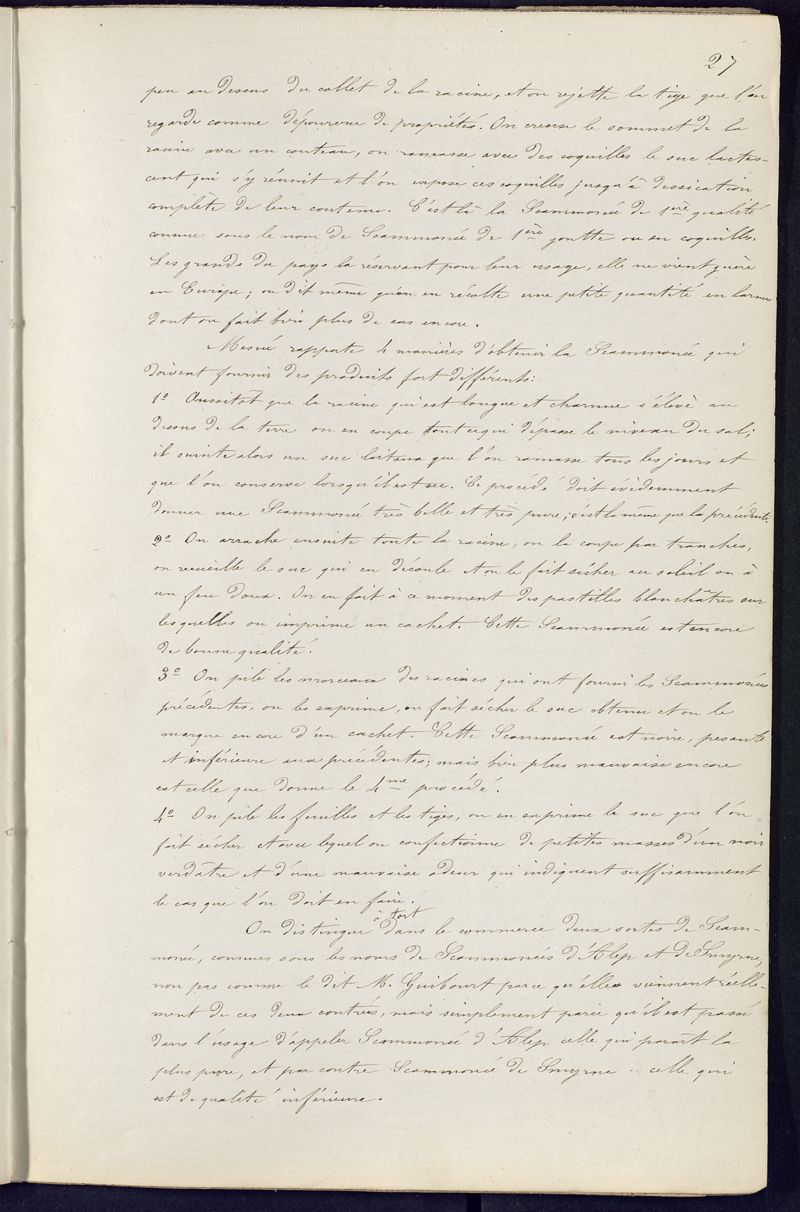 27
peu au dessous du collet de la racine, et on rejette la tige que l'on
regarde comme dépourvue de propriétés. On creuse le sommet de la
racine avec un couteau, on ramasse avec des coquilles le suc lactes-
cent qui s'y réunit et l'on expose ces coquilles jusqu'à dessication
complète de leur contenu. C'est là la Scammonée de 1ère qualité
connue sous le nom de Scammonée de 1ère goutte ou en coquilles.
Les grands du pays la réservant pour leur usage, elle ne vient guère
en Europe; on dit même qu'on en récolte une petite quantité en larmes
dont on fait bien plus de cas encore.
Mesué rapporte 4 manières d'obtenir la Scammonée qui
doivent fournir des produits fort différents:
1º Aussitôt que la racine qui est longue et charnue s'élève au
dessus de la terre on en coupe tout ce qui dépasse le niveau du sol;
il suinte alors un suc laiteux que l'on ramasse tous les jours et
que l'on conserve lorsqu'il est sec. Ce procédé doit évidemment
donner une Scammonée très belle et très pure; c'est la même que la précédente.
2º On arrache ensuite toute la racine, on la coupe par tranches,
on recueille le suc qui en découle et on le fait sécher au soleil ou à
un feu doux. On en fait à ce moment des pastilles blanchâtres sur
lesquelles on imprime un cachet. Cette Scammonée est encore
de bonne qualité.
3º On pile les morceaux des racines qui ont fourni les Scammonées
précédentes, on les exprime, on fait sécher le suc obtenu et on le
marque encore d'un cachet. Cette Scammonée est noire, pesante
et inférieure aux précédentes; mais bien plus mauvaise encore
est celle que donne le 4me procédé.
4º On pile les feuilles et les tiges, on en exprime le suc que l'on
fait sécher et avec lequel on confectionne de petites masses d'un noir
verdâtre et d'une mauvaise odeur qui indiquent suffisamment
le cas que l'on doit en faire.
à tort
On distingue dans le commerce deux sortes de Scam-
monée, connues sous les noms de Scammonées d'Alep et de Smyrne,
non pas comme le dit M. Guibourt parce qu'elles viennent réelle-
ment de ces deux contrées, mais simplement parce qu'il est passé
dans l'usage d'appeler Scammonée d'Alep celle qui paraît la
plus pure, et par contre Scammonée de Smyrne celle qui
est de qualité inférieure.